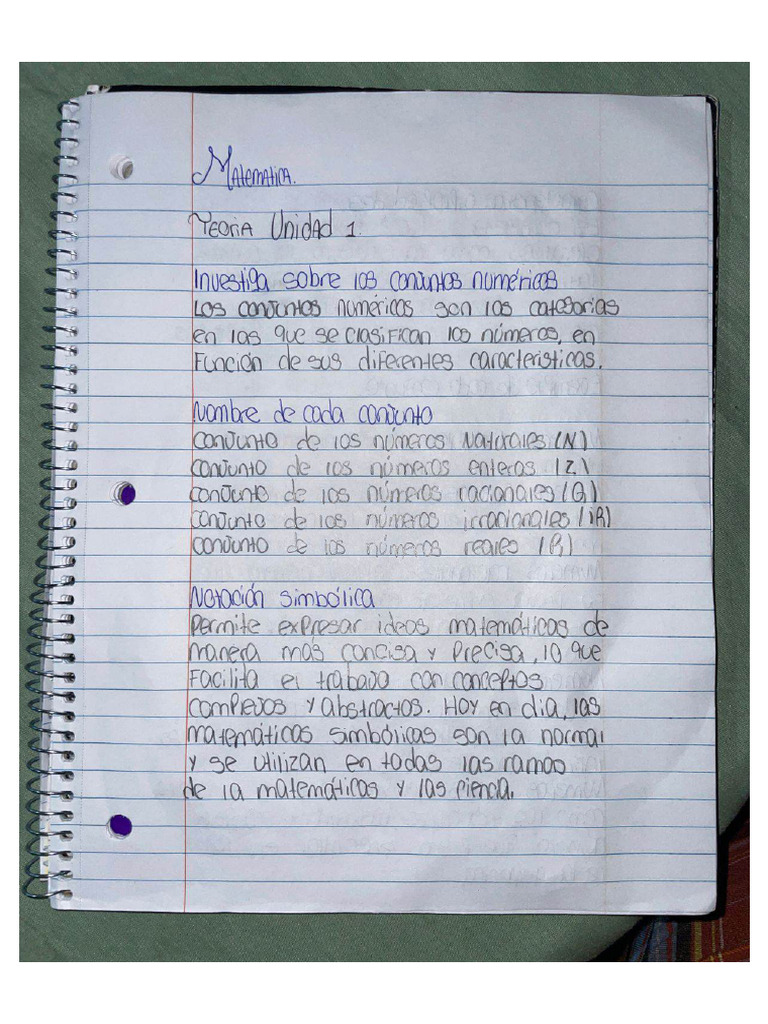 Matematica.
Teoria Unidad 1.
Investiga sobre los conjuntos numéricos
Los conjuntos numéricos son las categorías
en las que se clasifican los números, en
Función de sus diferentes caracteristicas.
Nombre de cada conjunto
Conjunto de los números Naturales (N)
Conjunto de los números enteros (Z)
Conjunto de los números racionales (Q)
Conjunto de los números irracionales (IR)
Conjunto de los números reales (R)
Notación simbólica
Permite expresar ideas matemáticas de
manera más concisa y precisa, lo que
Facilita el trabajo con conceptos
complejos y abstractos. Hoy en dia, las
matemáticas simbólicas son la normal
y se utilizan en todas las ramas
de la matemáticas y las ciencia.